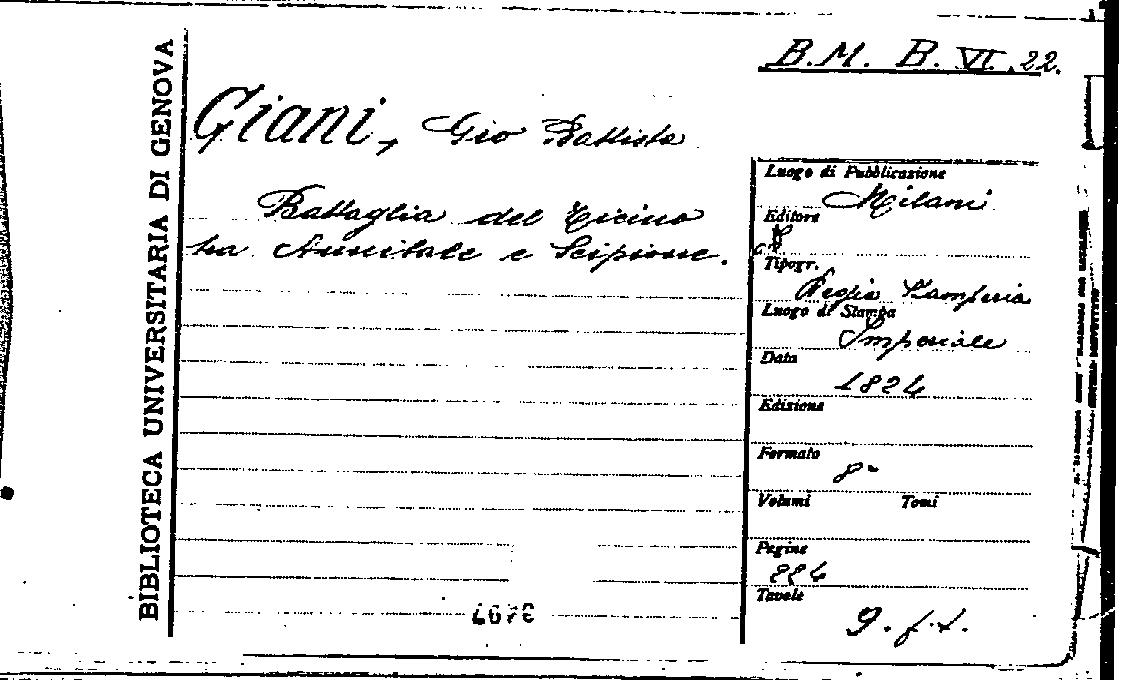 BIBLIOTECA UNIVERSITARIA DI GENOVA
B. M. B. VI. 22.
Giani, Gio Battista
Battaglia del Ticino
tra Annibale e Scipione.
Luogo di Pubblicazione
Milano
Editore
Tipogr.
Regia Stamperia
Luogo di Stampa
Imperiale
Data
1824
Edizione
Formato
8°
Volumi Tomi
Pagine
224
Tavole
9. f. t.